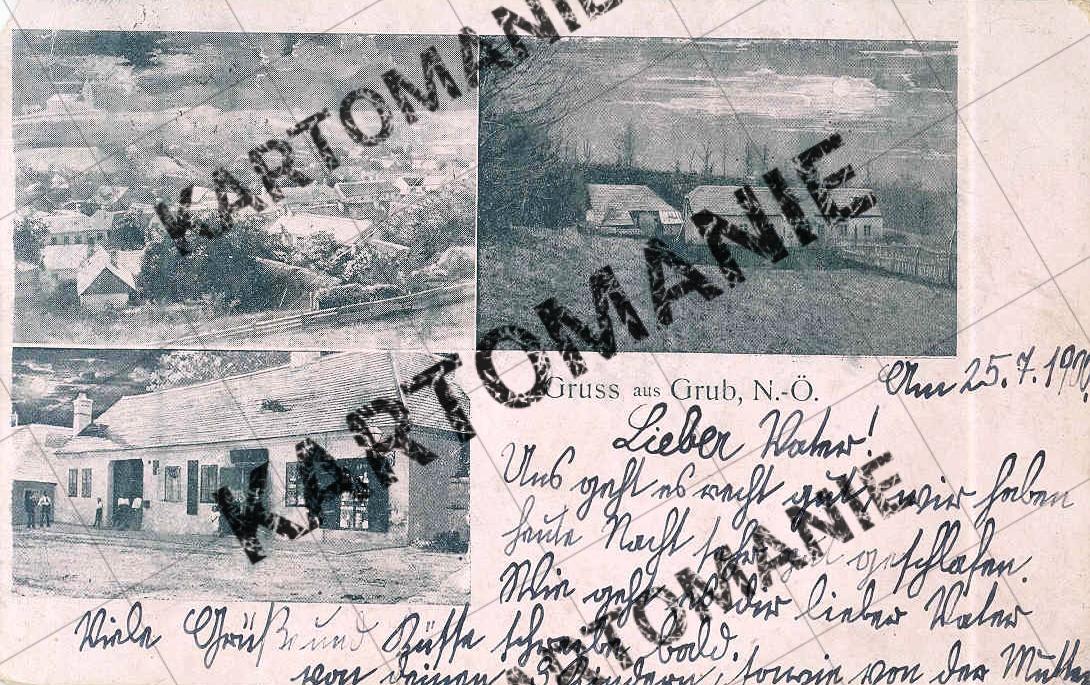 Gruss aus Grub, N.-Ö.
Am 25.7.19
Lieber Vater!
Uns geht es recht gut, wir haben
heute Nacht sehr gut geschlafen.
Wie geht es dir lieber Vater
Viele Grüße und Küsse schreibe bald.
von deinen Kindern, sowie von der Mutter
KARTOMANIE
KARTOMANIE
KARTOMANIE